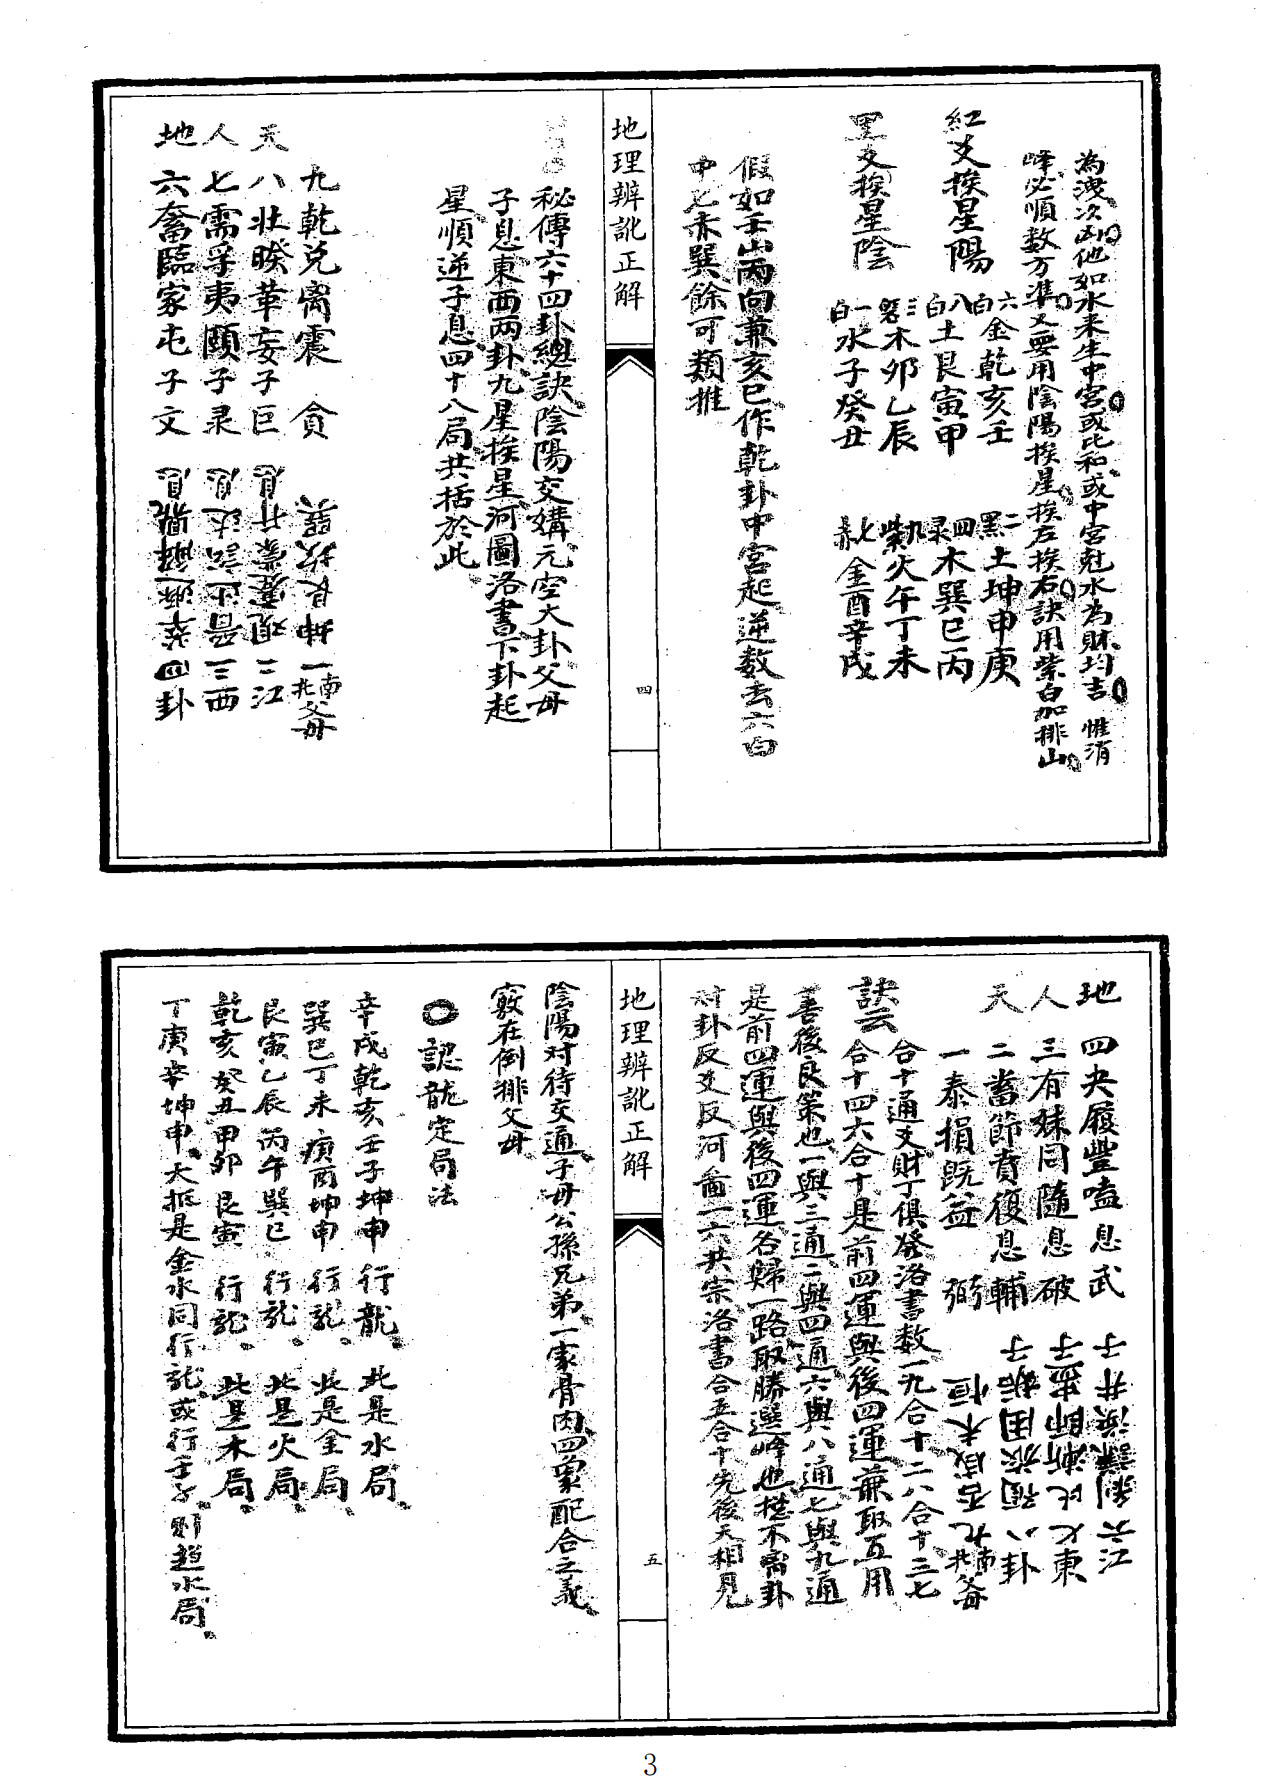 為洩次凶他如水来生中宮或比和或中宮尅水為財均吉惟消
峰必順数方準又要用陰陽挨星挨左挨右訣用紫白加排山
紅爻挨星陽
六白金乾亥壬
二黑土坤申庚
八白土艮寅甲
四录木巽巳丙
黑爻挨星陰
三碧木卯乙辰
九紫火午丁未
一白水子癸丑
七赤金酉辛戌
假如壬山丙向兼亥巳作乾卦中宮起逆数去六白
中七赤巽餘可類推
地理辨訛正解
四
秘傳六十四卦總訣陰陽交媾元空大卦父母
子息東西兩卦九星挨星河圖洛書下卦起
星順逆子息四十八局共括於此
九乾兑离震 貪 巽坎艮坤 一南北父母
天 八壮睽革妄子巨 息升蒙蹇观 二江
人 七需孚夷頤子录 息过訟晋 三西
地 六畜臨家屯子文 息鼎解萃 四卦
地 四夬履豐嗑息武 子井渙謙剝 六江
人 三有妹同隨息破 子蠱師漸比 七東
天 二畜節賁復息輔 子姤困旅預 八卦
一泰損既益 弼 恒未咸否 九南北父母
訣云
合十通爻財丁俱發洛書数一九合十二八合十三七
合十四六合十是前四運與後四運兼取互用
善後良策也一與三通二與四通六與八通七與九通
是前四運與後四運各歸一路取勝選峰也捴不离卦
对卦反爻反河畵一六共宗洛書合五合十先後天相見
地理辨訛正解
五
陰陽对待交通子母公孫兄弟一家骨肉四象配合之義
竅在倒排父母
〇認龍定局法
辛戌乾亥壬子坤申行龍此是水局
巽巳丁未庚酉坤申行龍此是金局
艮寅乙辰丙午巽巳行龍此是火局
乾亥癸丑甲卯艮寅行龍此是木局
丁庚辛坤申大抵是金水同行龍或行壬子則趋水局
3